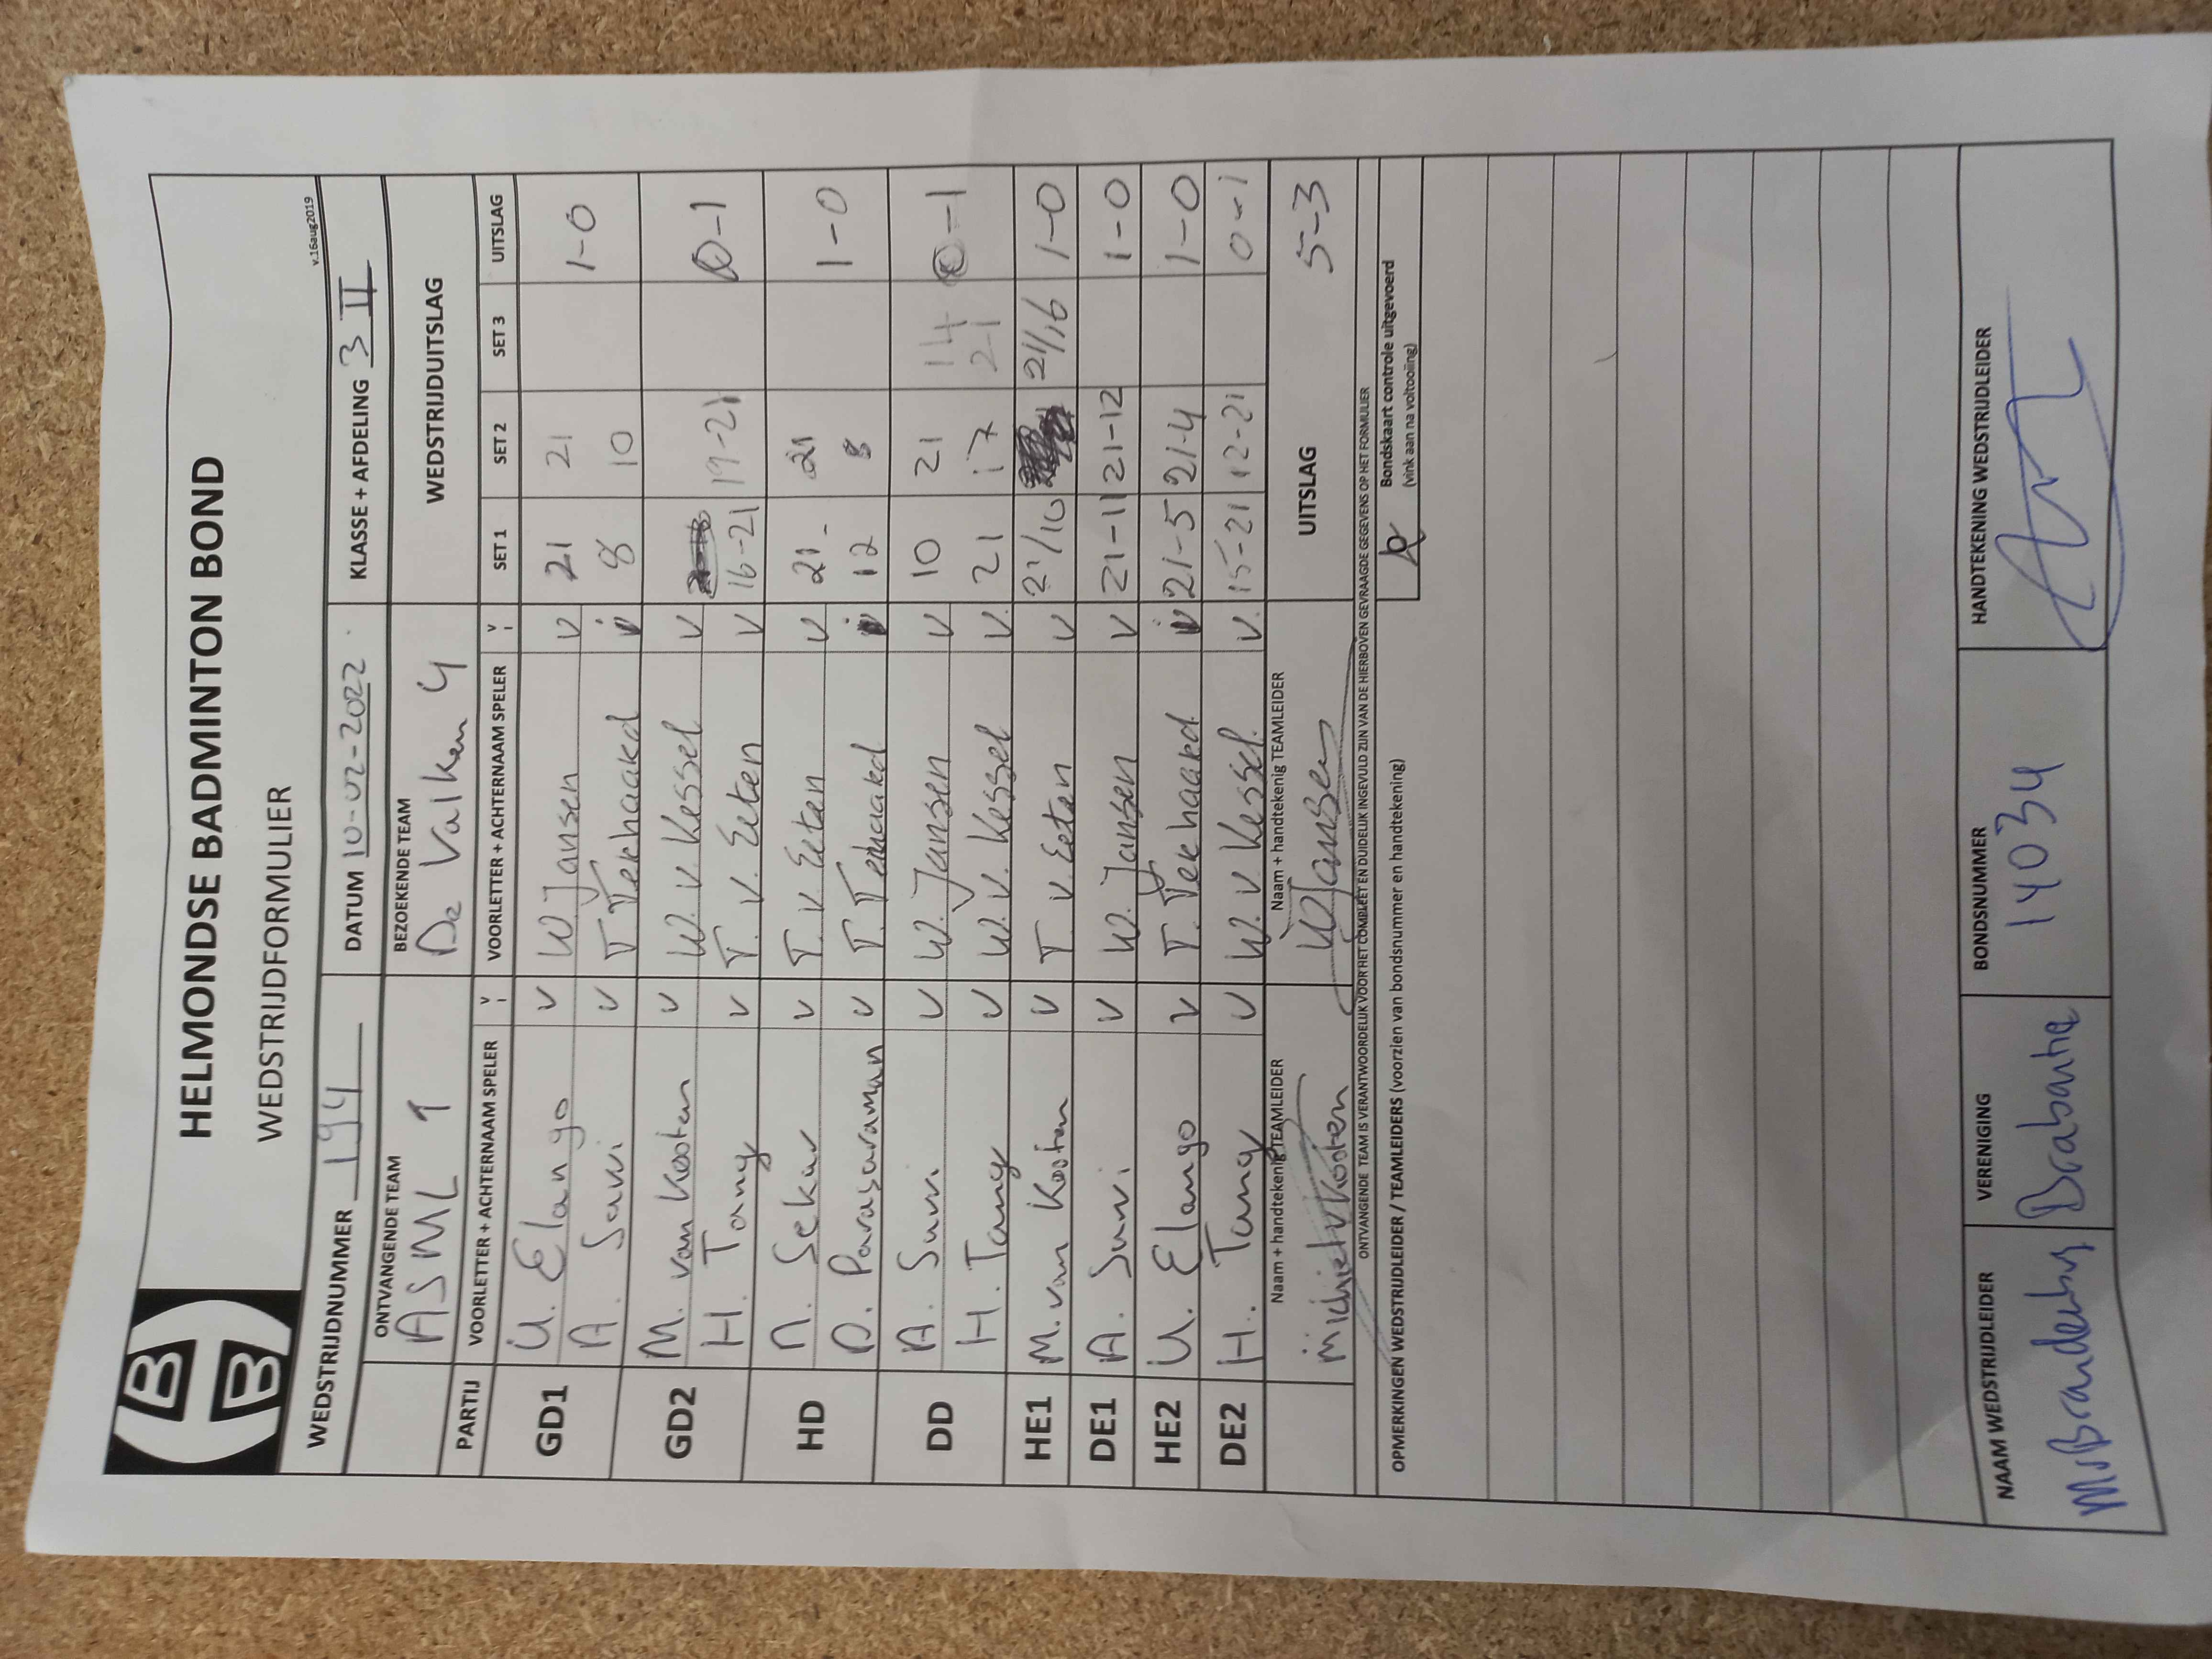 HBB
HELMONDSE BADMINTON BOND
WEDSTRIJDFORMULIER
v.16aug2019
WEDSTRIJDNUMMER 194 DATUM 10-02-2022 KLASSE + AFDELING 3 II
ONTVANGENDE TEAM BEZOEKENDE TEAM WEDSTRIJDUITSLAG
ASML 1 De Valken 4
PARTIJ VOORLETTER + ACHTERNAAM SPELER v i VOORLETTER + ACHTERNAAM SPELER v i SET 1 SET 2 SET 3 UITSLAG
GD1 U. Elango v W. Jansen v 21 21 1-0
A. Savi v T. Terhaakd 8 10
GD2 M. van Kooten v W. v. Kessel v 0-1
H. Tang v T. v. Eeten v 16-21 19-21
HD A. Sekar v T. v. Eeten v 21- 21 1-0
D. Parasuraman v T. 12 8
DD A. Suvi v W. Jansen v 10 21 14 0-1
H. Tang v W. v. Kessel v. 21 17 21
HE1 M. van Kooten v T v. Eeten v 21/10 21/16 1-0
DE1 A. Suvi v W. Jansen v 21-11 21-12 1-0
HE2 U. Elango v T. Terhaakd 21-5 21-4 1-0
DE2 H. Tang v W. v. Kessel v. 15-21 12-21 0-1
Naam + handtekenig TEAMLEIDER Naam + handtekenig TEAMLEIDER UITSLAG 5-3
Michiel v Kooten W Jansen
ONTVANGENDE TEAM IS VERANTWOORDELIJK VOOR HET COMPLEET EN DUIDELIJK INGEVULD ZIJN VAN DE HIERBOVEN GEVRAAGDE GEGEVENS OP HET FORMULIER
OPMERKINGEN WEDSTRIJDLEIDER / TEAMLEIDERS (voorzien van bondsnummer en handtekening) Bondskaart controle uitgevoerd
(vink aan na voltooiing)
NAAM WEDSTRIJDLEIDER VERENIGING BONDSNUMMER HANDTEKENING WEDSTRIJDLEIDER
Brabantia 14034